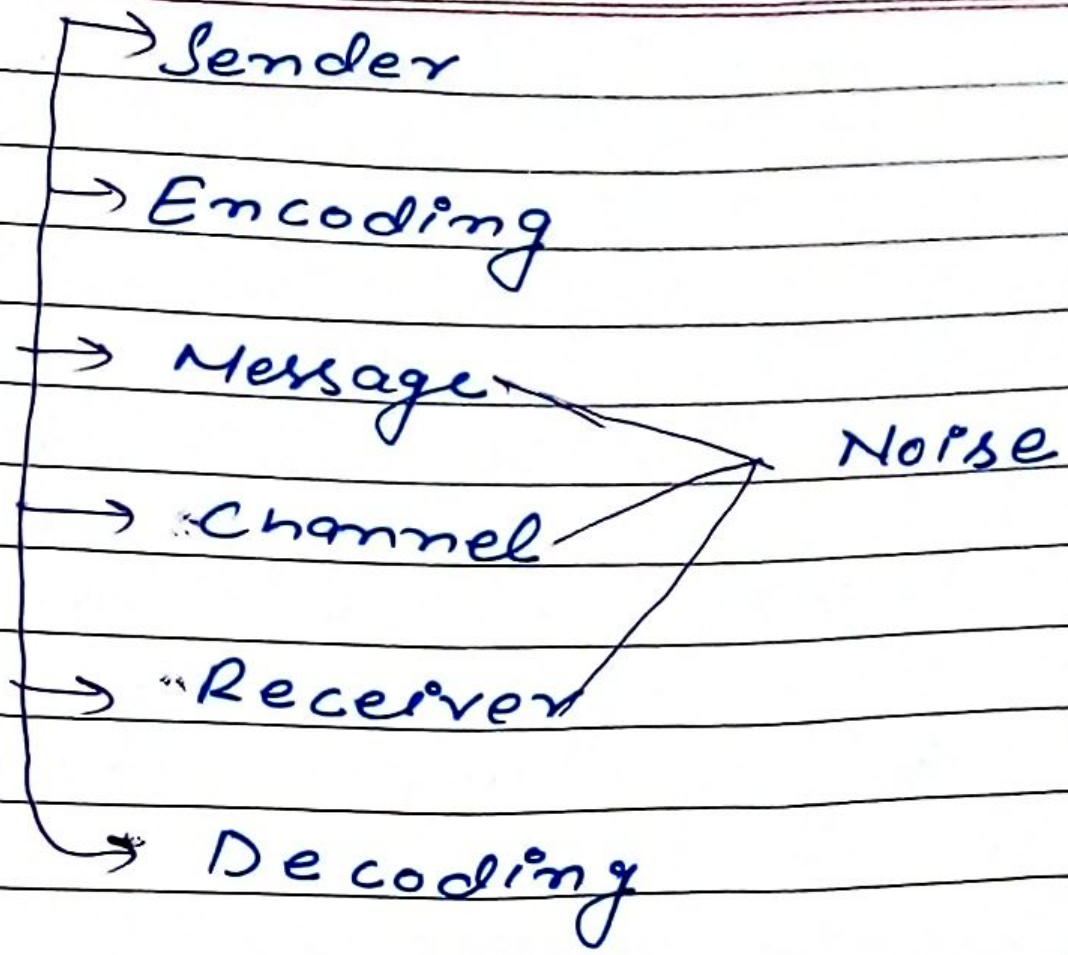 Sender
Encoding
Message
Noise
Channel
Receiver
Decoding